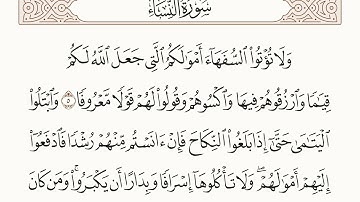 سُورَةُ النِّسَاءِ
وَلَا تُؤْتُوا۟ ٱلسُّفَهَآءَ أَمْوَٰلَكُمُ ٱلَّتِى جَعَلَ ٱللَّهُ لَكُمْ
قِيَٰمًا وَٱرْزُقُوهُمْ فِيهَا وَٱكْسُوهُمْ وَقُولُوا۟ لَهُمْ قَوْلًا مَّعْرُوفًا ٥ وَٱبْتَلُوا۟
ٱلْيَتَٰمَىٰ حَتَّىٰٓ إِذَا بَلَغُوا۟ ٱلنِّكَاحَ فَإِنْ ءَانَسْتُم مِّنْهُمْ رُشْدًا فَٱدْفَعُوٓا۟
إِلَيْهِمْ أَمْوَٰلَهُمْ ۖ وَلَا تَأْكُلُوهَآ إِسْرَافًا وَبِدَارًا أَن يَكْبَرُوا۟ ۚ وَمَن كَانَ